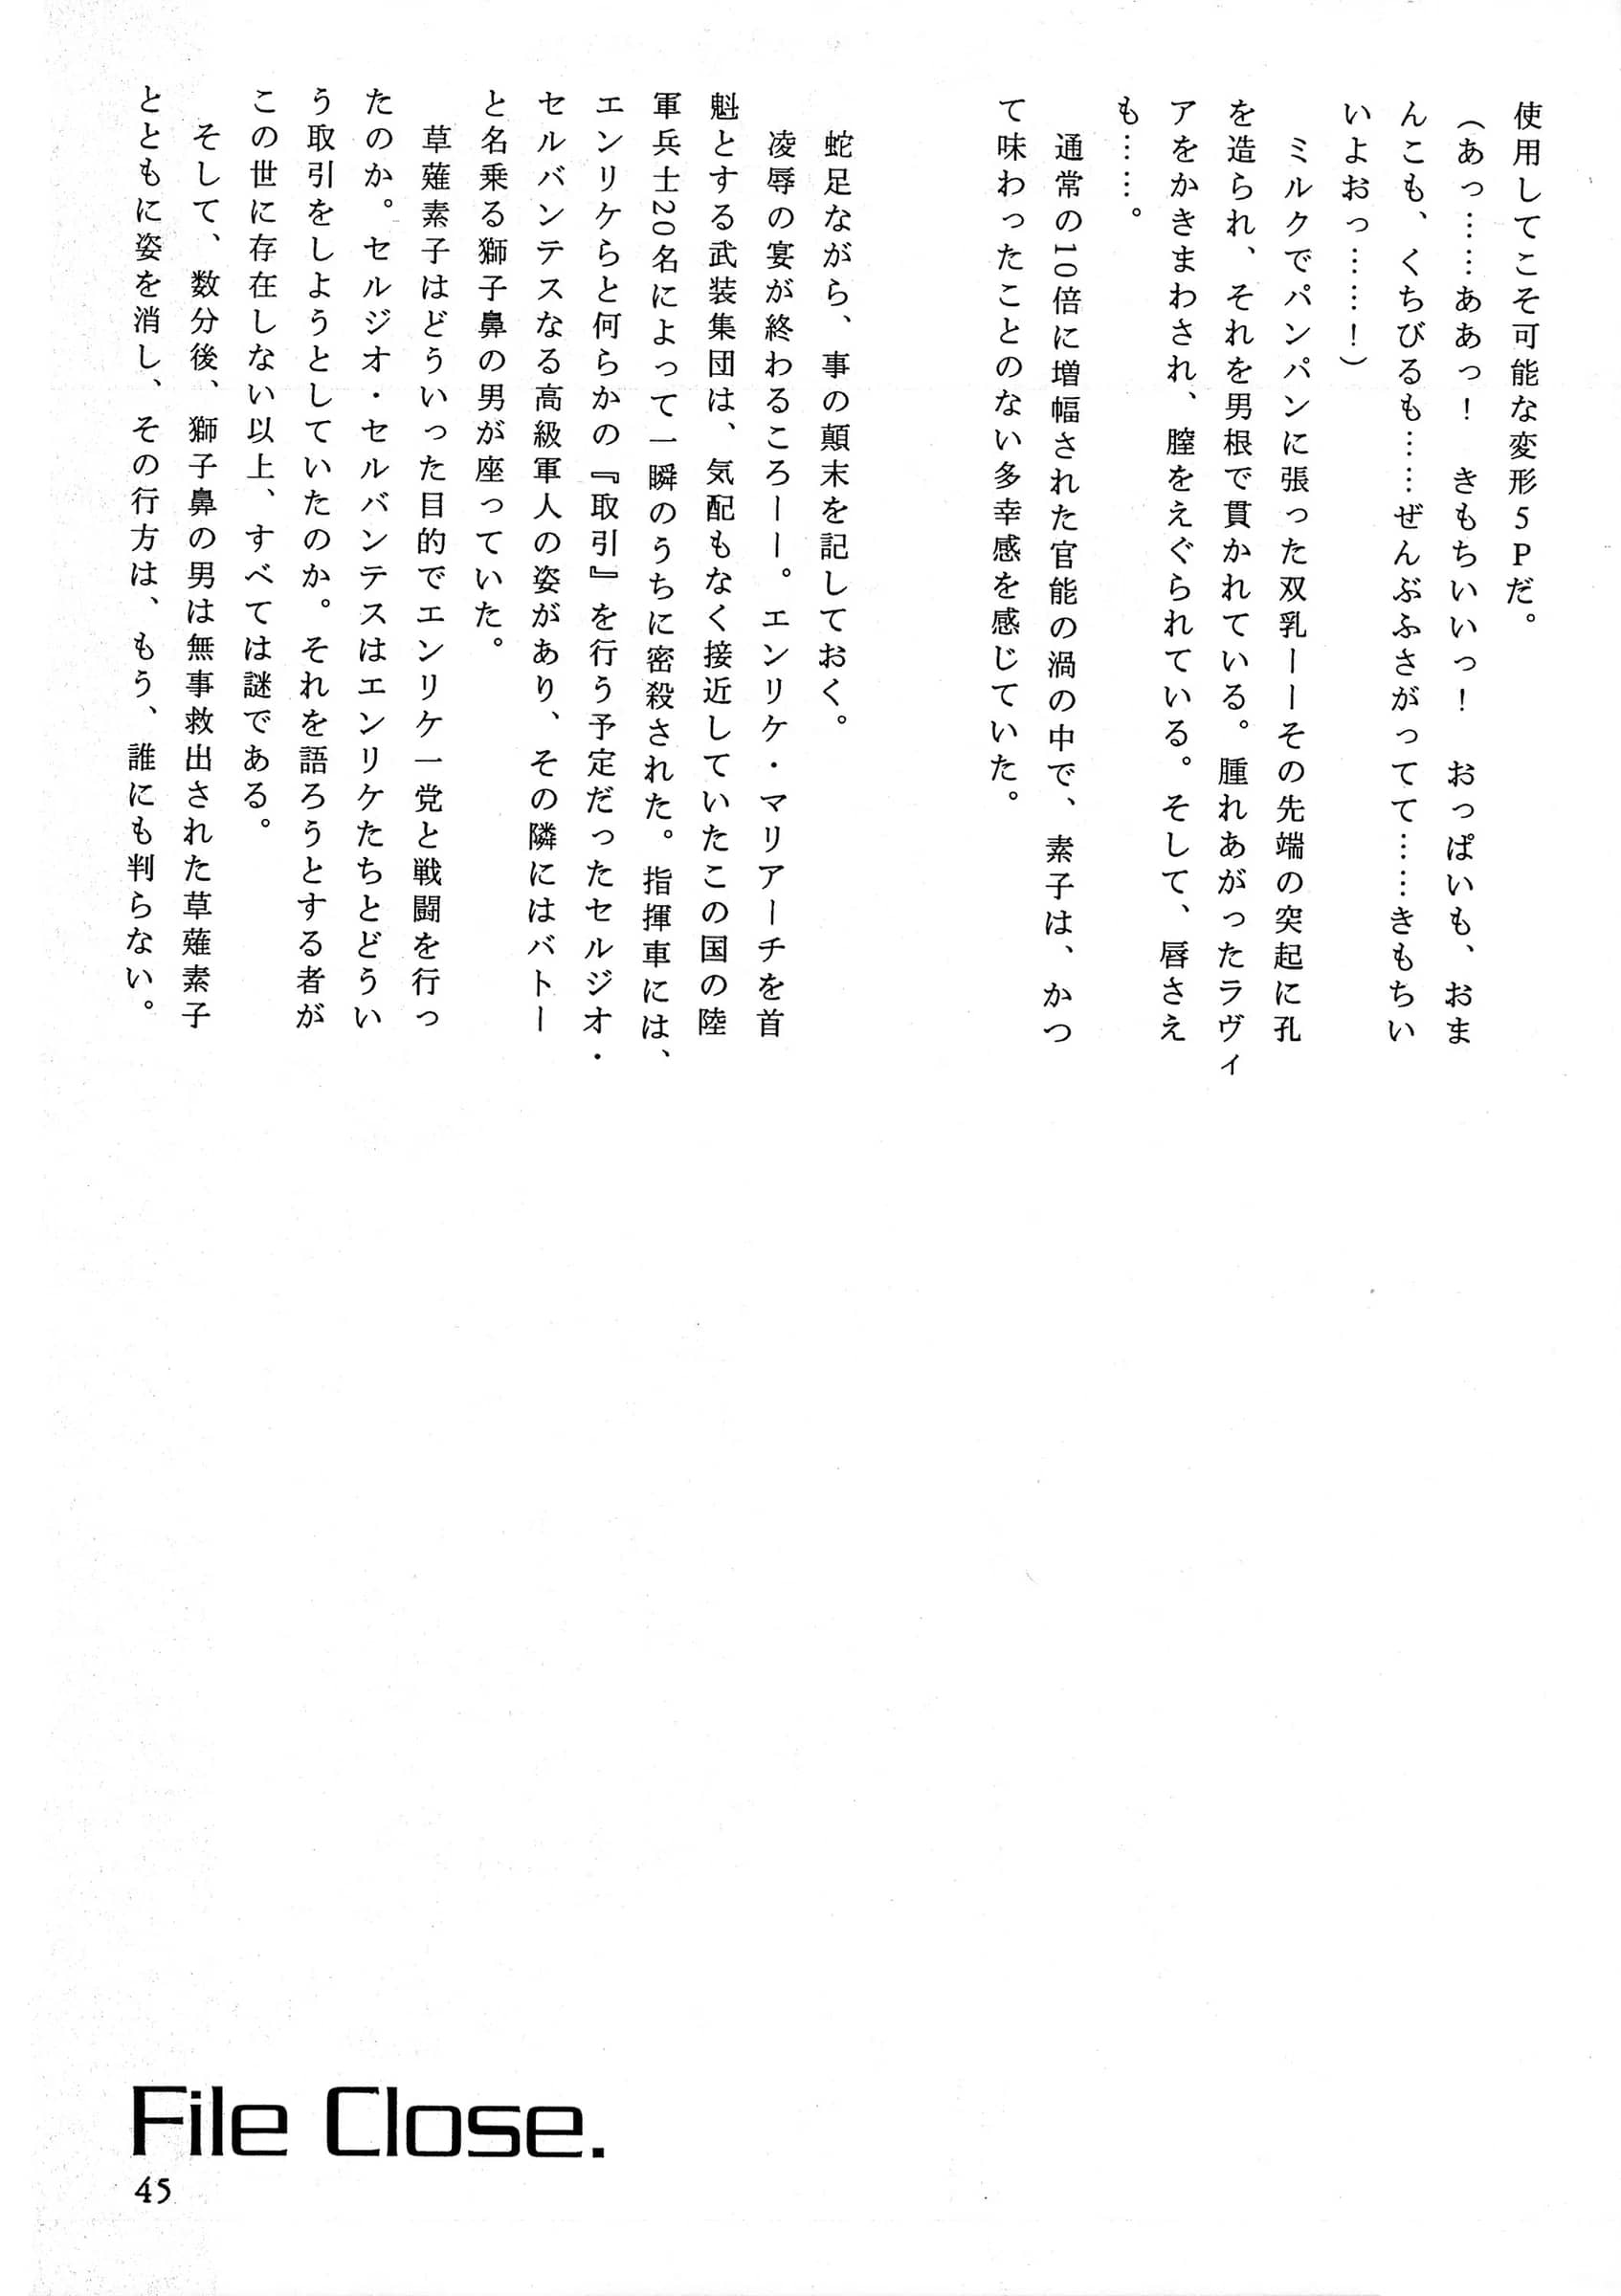 使用してこそ可能な変形５Ｐだ。
（あっ……ああっ！　きもちいいっ！　おっぱいも、おま
んこも、くちびるも……ぜんぶふさがってて……きもちい
いよおっ……！）
ミルクでパンパンに張った双乳ーーその先端の突起に孔
を造られ、それを男根で貫かれている。腫れあがったラヴィ
アをかきまわされ、膣をえぐられている。そして、唇さえ
も……。
通常の10倍に増幅された官能の渦の中で、素子は、かつ
て味わったことのない多幸感を感じていた。
蛇足ながら、事の顛末を記しておく。
凌辱の宴が終わるころーー。エンリケ・マリアーチを首
魁とする武装集団は、気配もなく接近していたこの国の陸
軍兵士20名によって一瞬のうちに密殺された。指揮車には、
エンリケらと何らかの『取引』を行う予定だったセルジオ・
セルバンテスなる高級軍人の姿があり、その隣にはバトー
と名乗る獅子鼻の男が座っていた。
草薙素子はどういった目的でエンリケ一党と戦闘を行っ
たのか。セルジオ・セルバンテスはエンリケたちとどうい
う取引をしようとしていたのか。それを語ろうとする者が
この世に存在しない以上、すべては謎である。
そして、数分後、獅子鼻の男は無事救出された草薙素子
とともに姿を消し、その行方は、もう、誰にも判らない。
File Close.
45